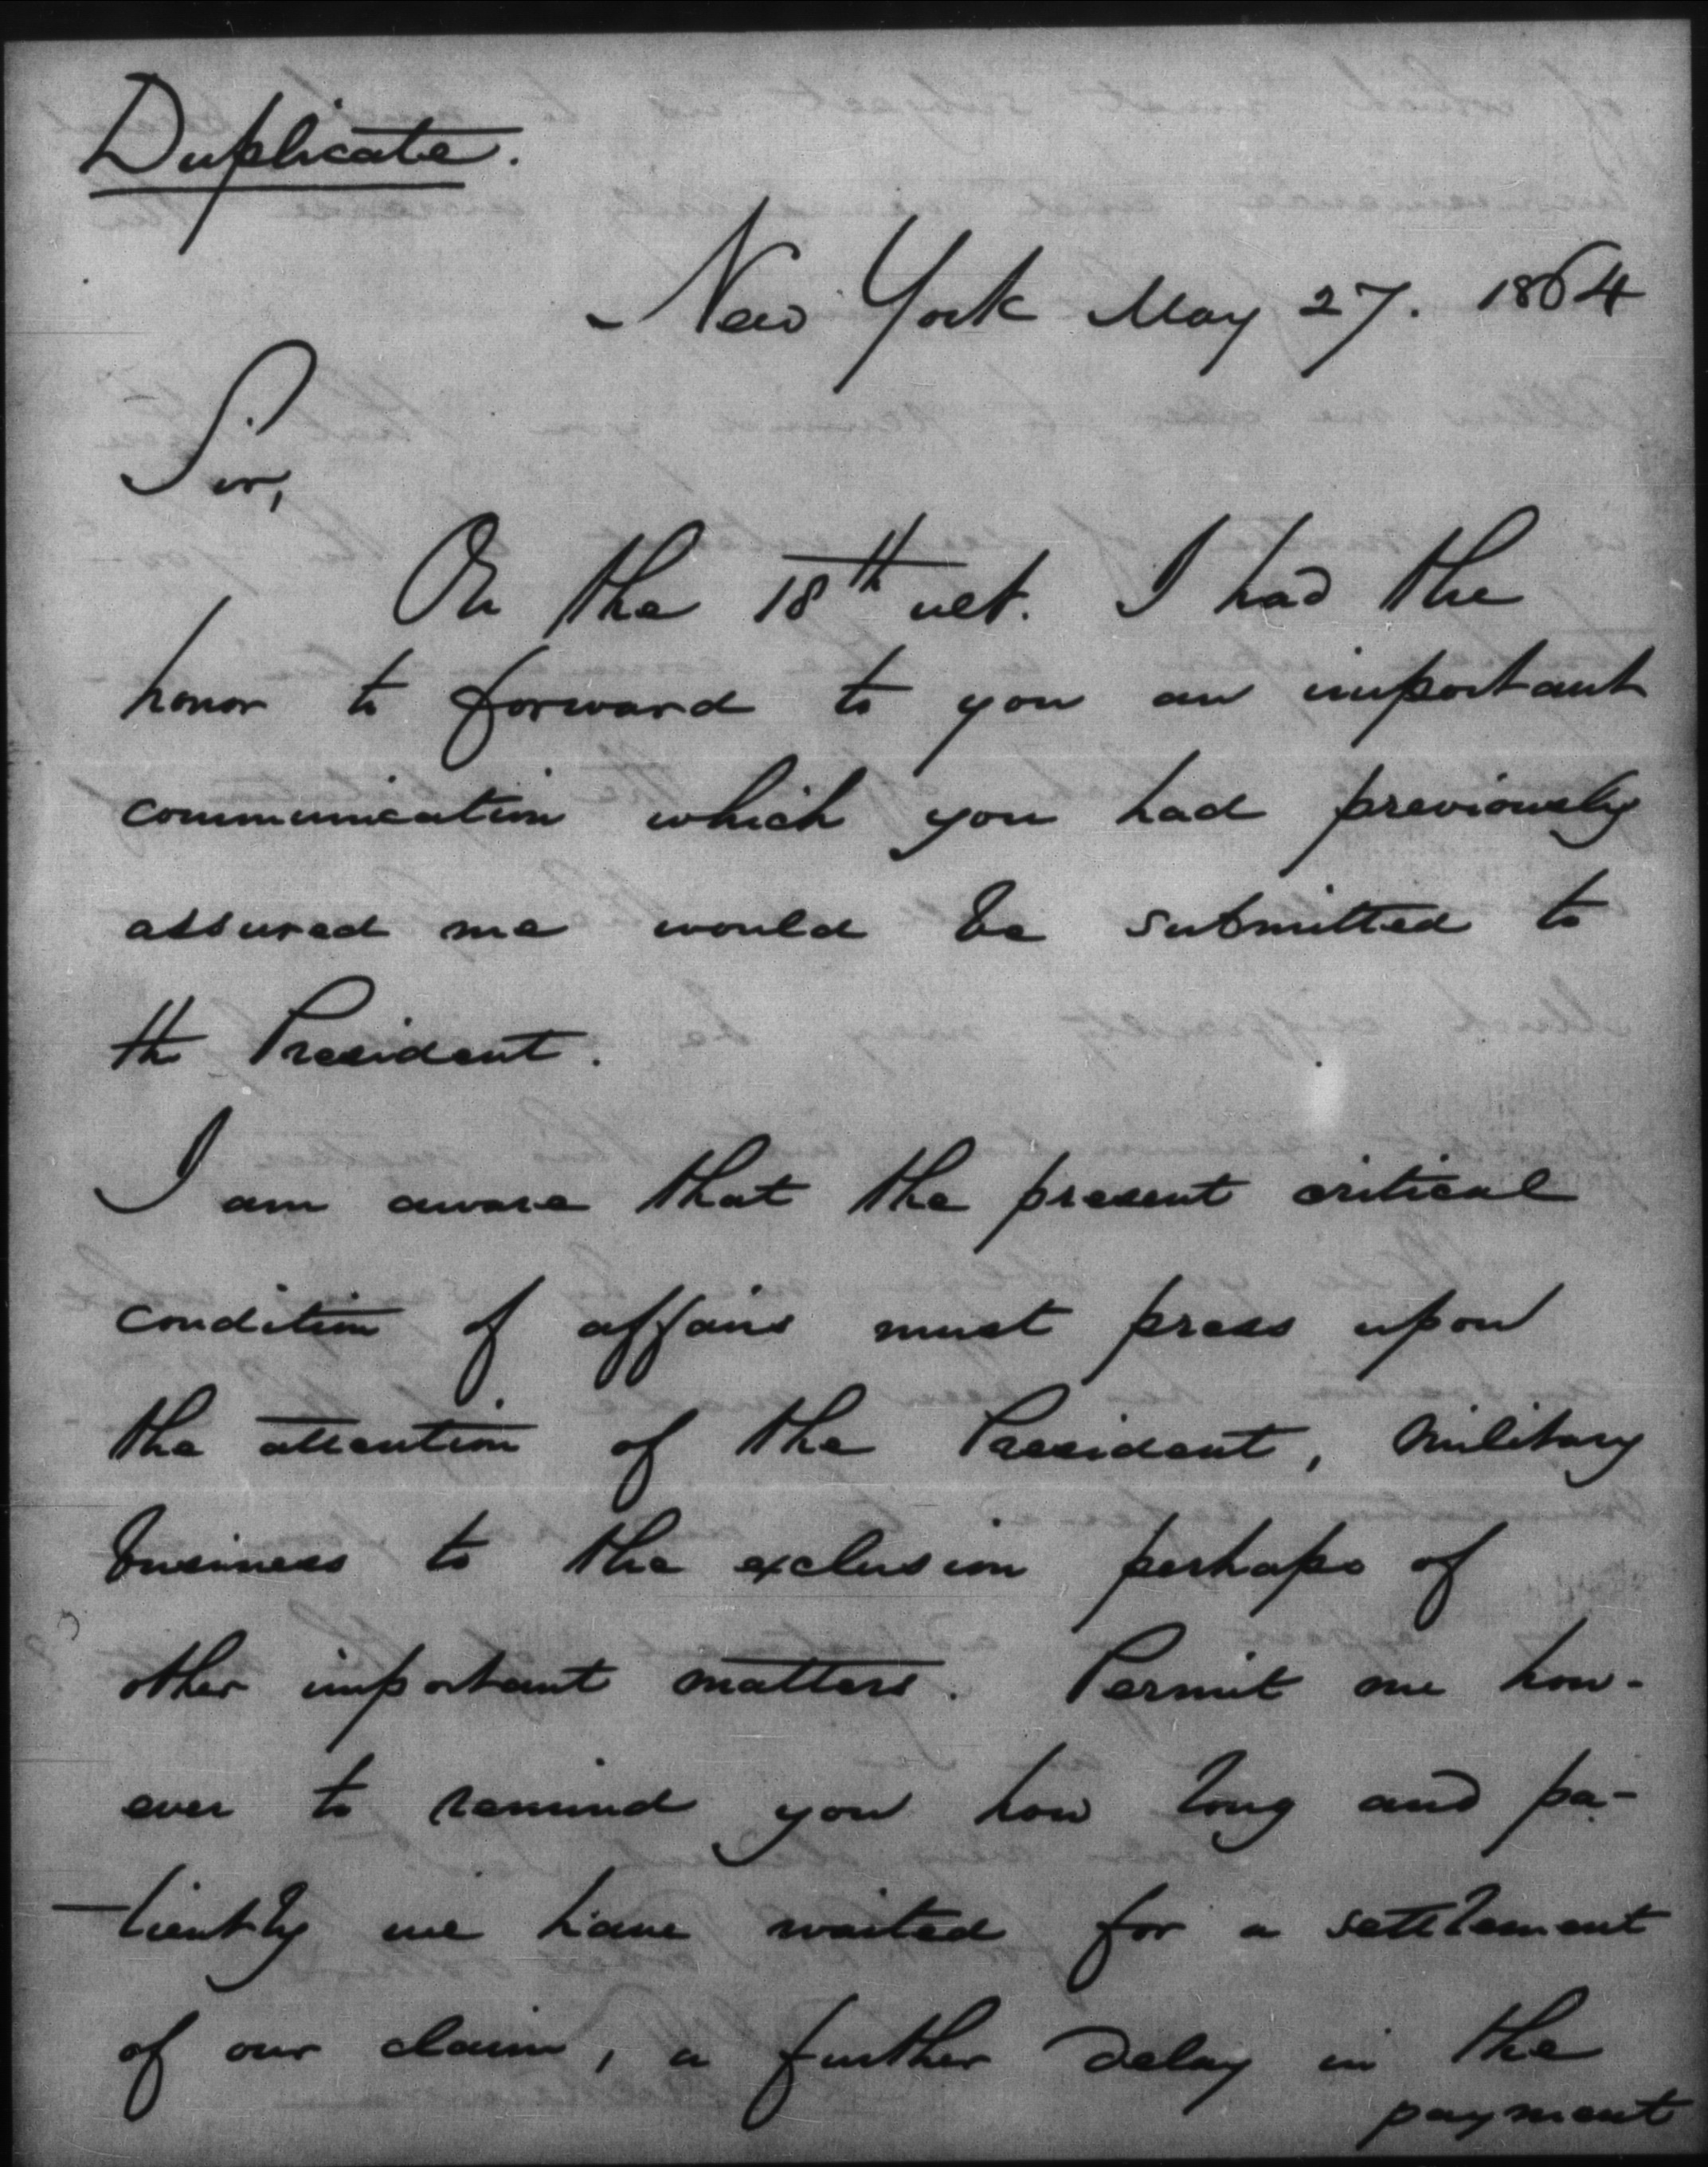 Duplicate.
New York May 27. 1864
Sir,
On the 18th ult. I had the
honor to forward to you an important
communication which you had previously
assured me would be submitted to
the President.
I am aware that the present critical
condition of affairs must press upon
the attention of the President, military
business to the exclusion perhaps of
other important matters. Permit me how-
ever to remind you how long and pa-
tiently we have waited for a settlement
of our claim, a further delay in the
payment